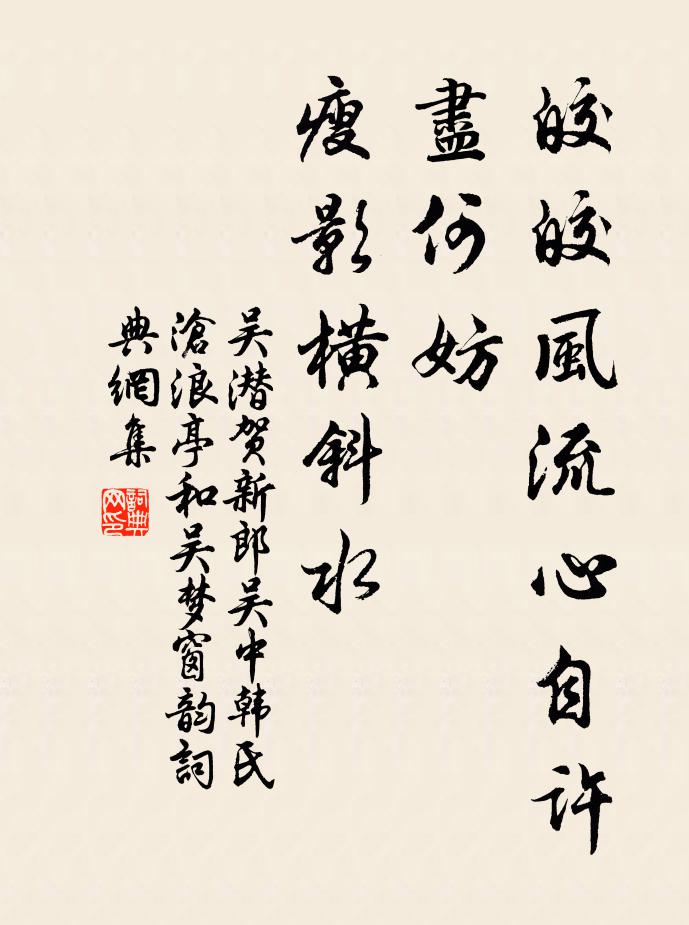 皎皎風流心自許
盡何妨
瘦影橫斜水
吴潛贺新郎吴中韩氏
滄浪亭和吴梦窗韵詞
典網集
詞典
网印